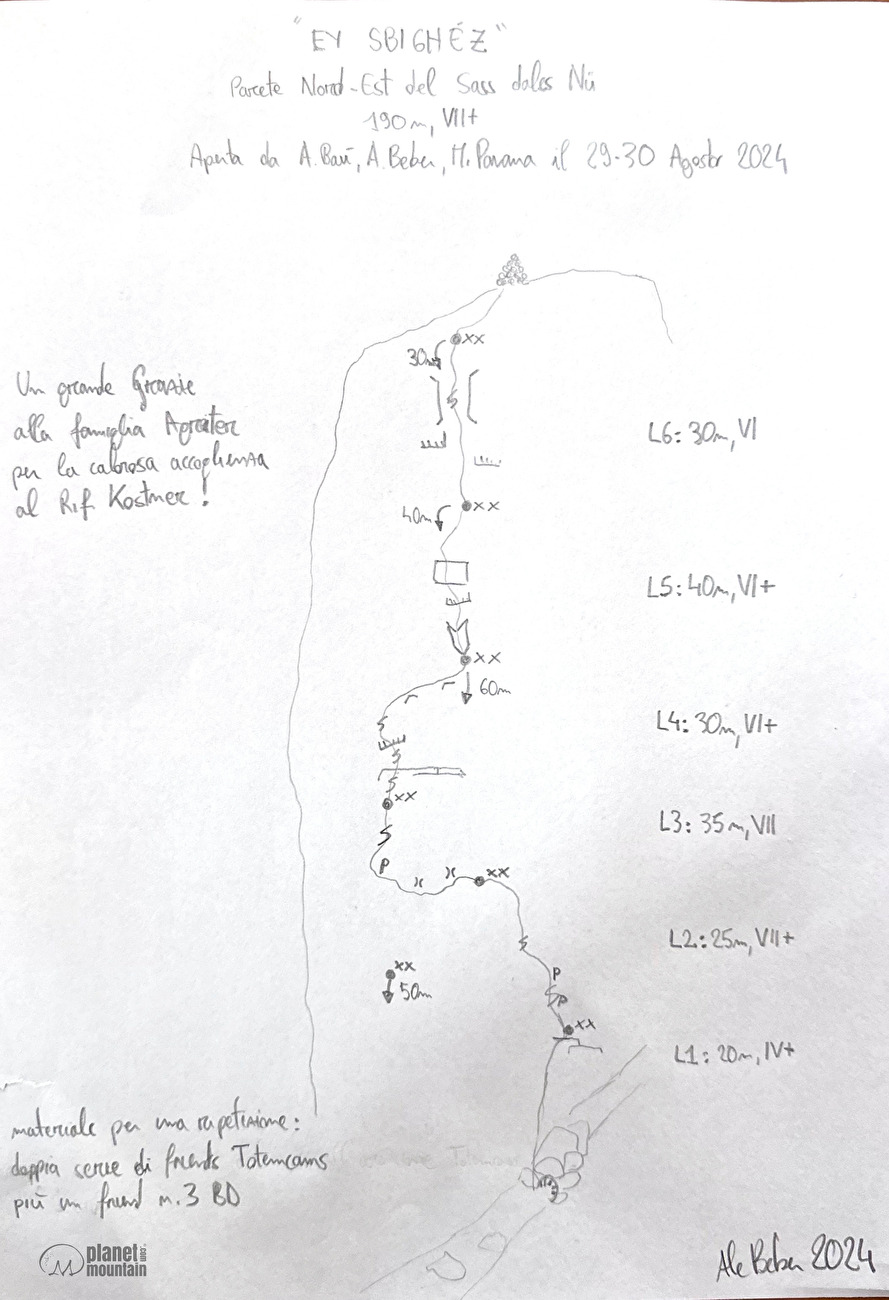 "EY SBIGHÉZ"
Parete Nord-Est del Sass dales Nü
190m, VII+
Aperta da A.Baù, A.Beber, M.Panama il 29-30 Agosto 2024
30m
xx
Un grande Grazie
alla famiglia Agreiter
per la calorosa accoglienza
al Rif. Kostner!
L6: 30m, VI
40m
xx
L5: 40m, VI+
xx
60m
L4: 30m, VI+
xx
L3: 35m, VII
P
xx
L2: 25m, VII+
xx
50m
P
P
xx
L1: 20m, IV+
materiale per una ripetizione:
doppia serie di friends Totemcams
più un friend n.3 BD
planet
mountain
.com
Ale Beber 2024